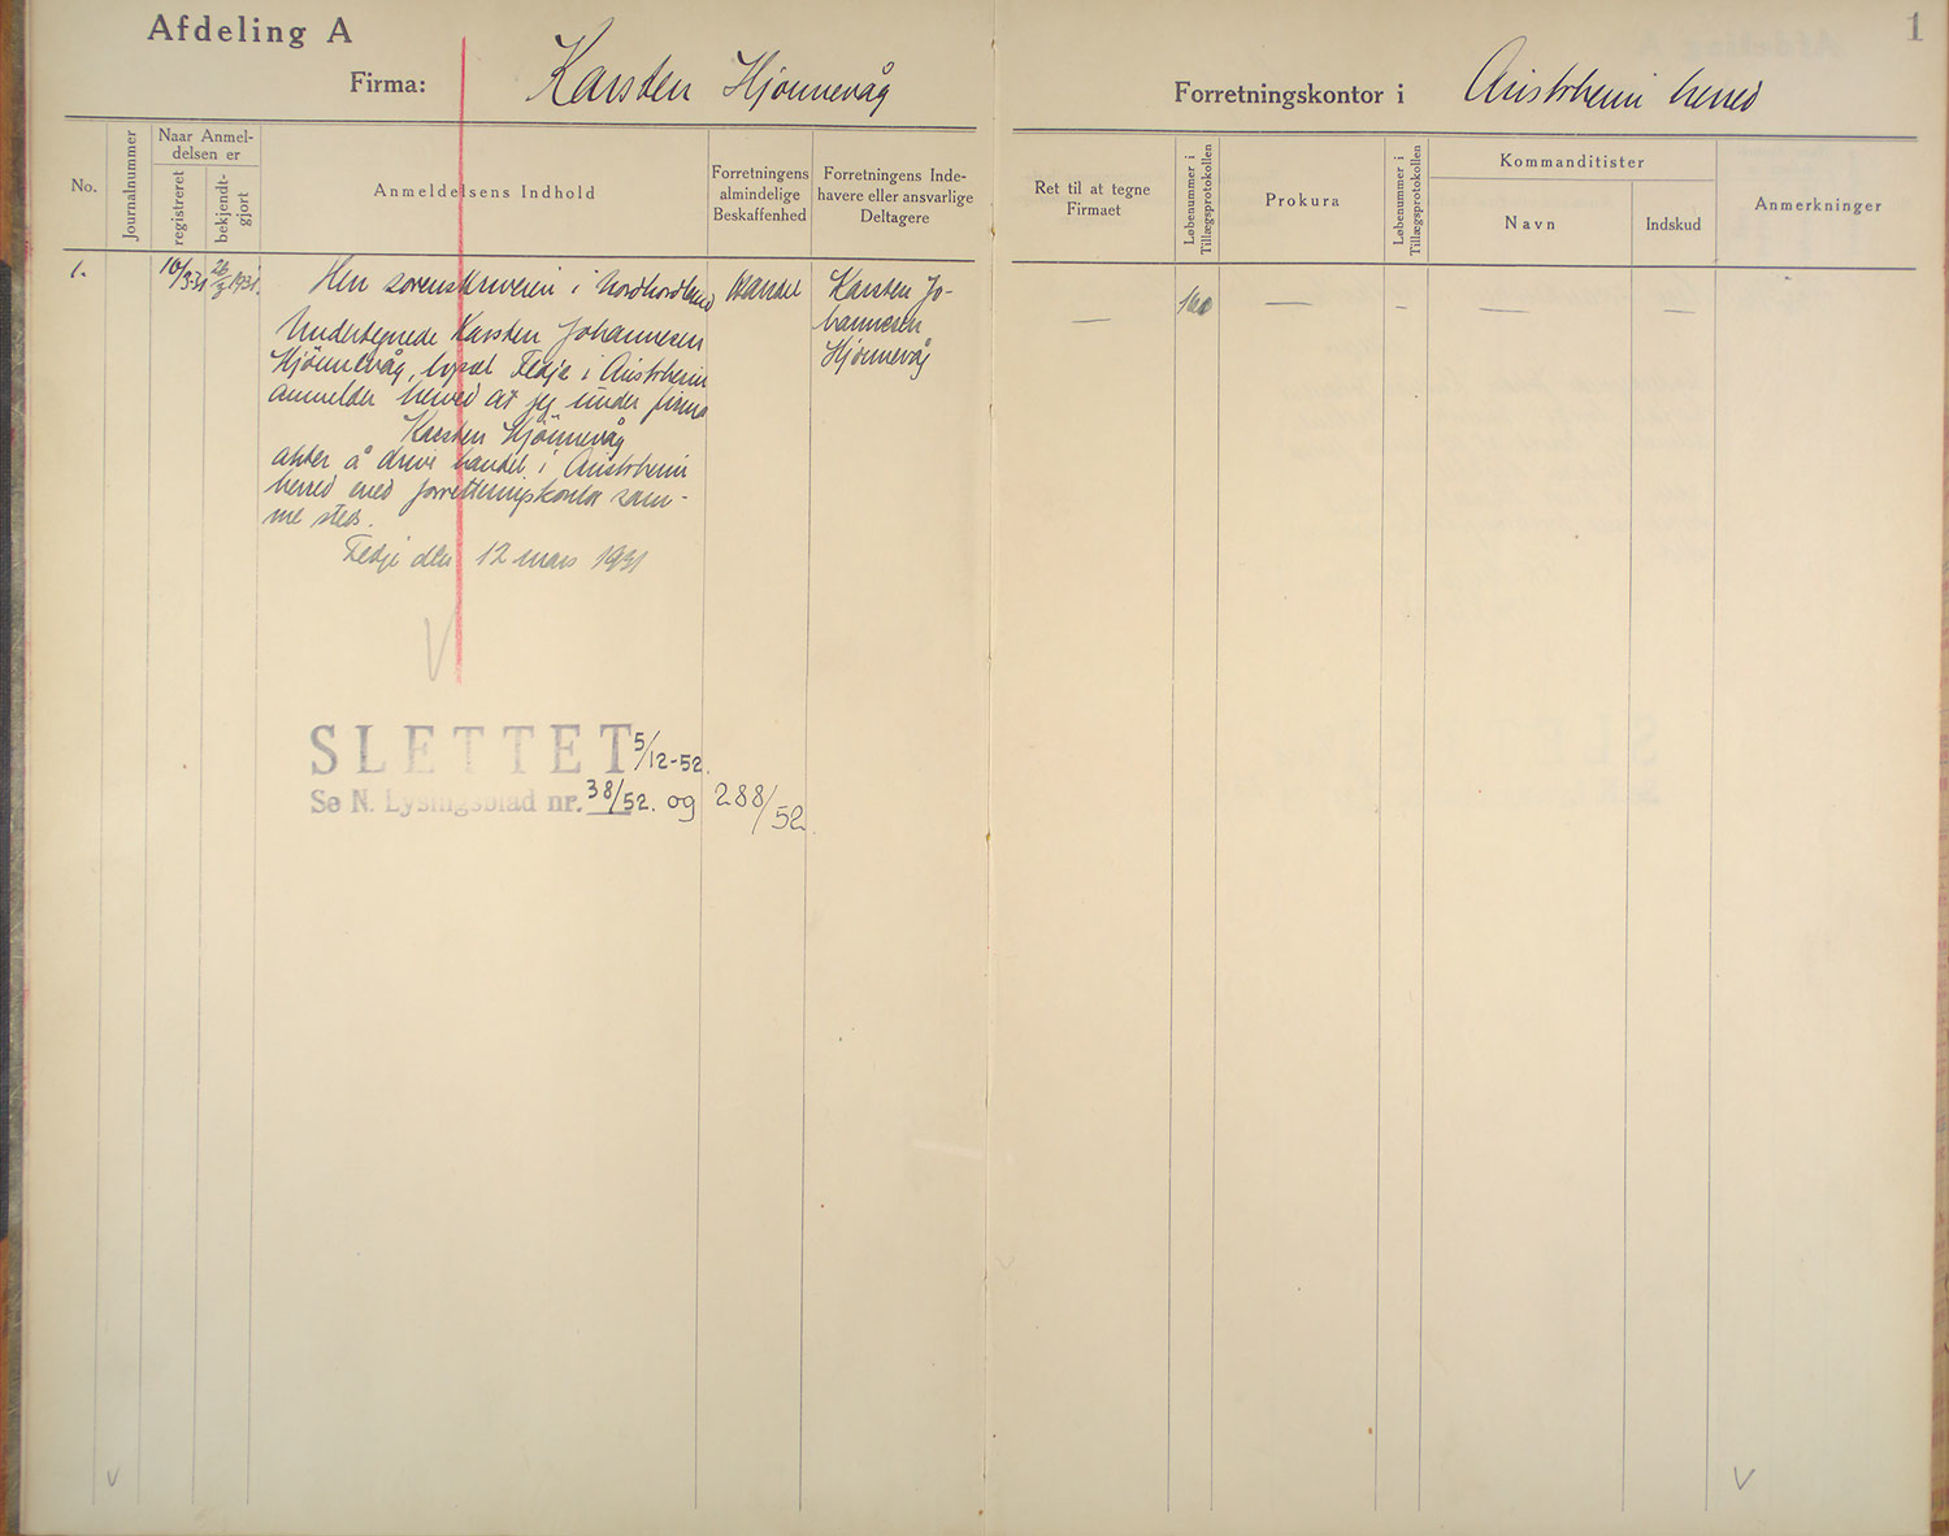 1
Afdeling A
Firma: Karsten Hjønnevåg
Forretningskontor i Austrheim herred
No.
Journalnummer
Naar Anmel-
delsen er
registreret
bekjendt-
gjort
Anmeldelsens Indhold
Forretningens
almindelige
Beskaffenhed
Forretningens Inde-
havere eller ansvarlige
Deltagere
Ret til at tegne
Firmaet
Løbenummer i
Tillægsprotokollen
Prokura
Løbenummer i
Tillægsprotokollen
Kommanditister
Navn
Indskud
Anmerkninger
1.
16/3-31
26/3 1931.
Herr sorenskriveren i Nordhordland
Undertegnede Karsten Johannesen
Hjönnevåg, Fedje i Austrheim
anmelder herved at jeg under firma
Karsten Hjönnevåg
akter å drive handel i Austrheim
herred med forretningskontor sam-
me sted.
Fedje den 12 mars 1931
Handel
Karsten Jo-
hannesen
Hjønnevåg
—
—
-
—
—
SLETTET 5/12-52.
Se N. Lysingsblad nr. 38/52. og 288/52